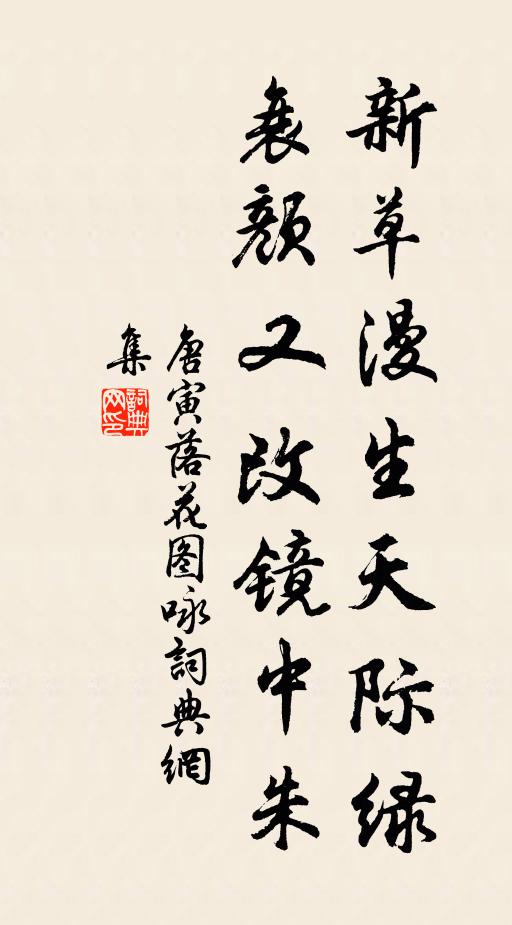 新草漫生天际绿
衰颜又改镜中朱
唐寅落花图咏詞典網
集
詞典
网印